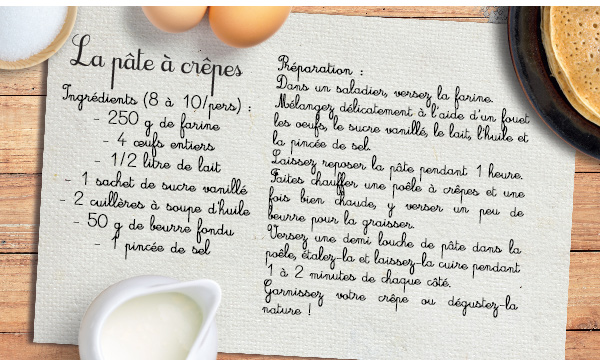 La pâte à crêpes
Ingrédients (8 à 10/pers) :
- 250 g de farine
- 4 œufs entiers
- 1/2 litre de lait
- 1 sachet de sucre vanillé
- 2 cuillères à soupe d'huile
- 50 g de beurre fondu
- 1 pincée de sel
Préparation :
Dans un saladier, versez la farine.
Mélangez délicatement à l'aide d'un fouet
les oeufs, le sucre vanillé, le lait, l'huile et
la pincée de sel.
Laissez reposer la pâte pendant 1 heure.
Faites chauffer une poêle à crêpes et une
fois bien chaude, y verser un peu de
beurre pour la graisser.
Versez une demi louche de pâte dans la
poêle, étalez-la et laissez-la cuire pendant
1 à 2 minutes de chaque côté.
Garnissez votre crêpe ou dégustez-la
nature !